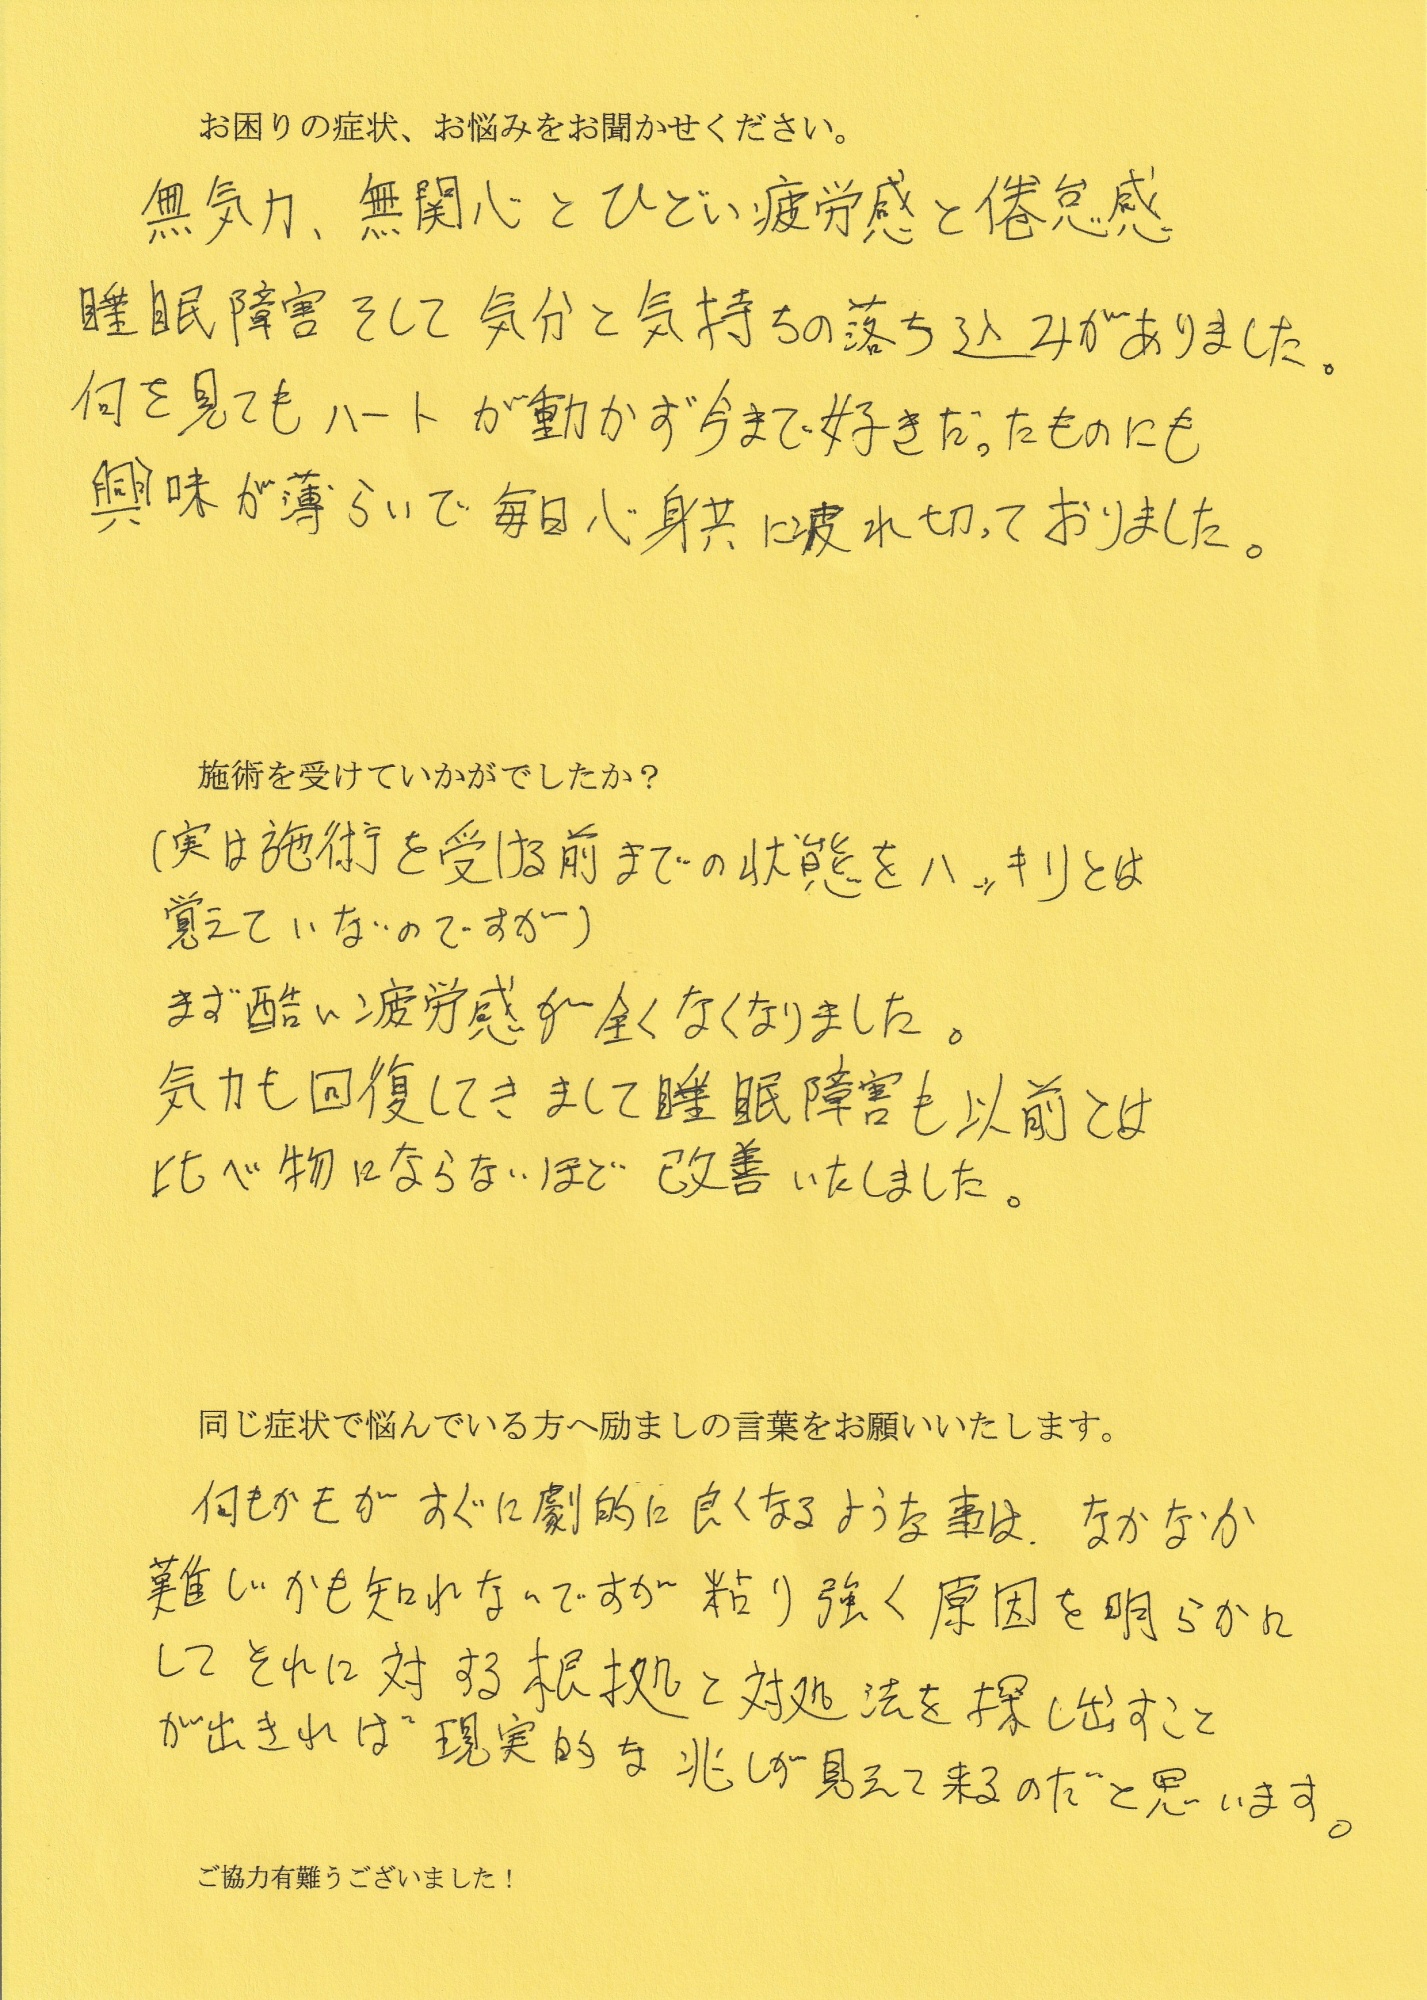 お困りの症状、お悩みをお聞かせください。
無気力、無関心とひどい疲労感と倦怠感
睡眠障害そして気分と気持ちの落ち込みがありました。
何を見てもハートが動かず今まで好きだったものにも
興味が薄らいで毎日心身共に疲れ切っておりました。
施術を受けていかがでしたか？
(実は施術を受ける前までの状態をハッキリとは
覚えていないのですが)
まず酷い疲労感が全くなくなりました。
気力も回復してきまして睡眠障害も以前とは
比べ物にならないほど改善いたしました。
同じ症状で悩んでいる方へ励ましの言葉をお願いいたします。
何もかもがすぐに劇的に良くなるような事は、なかなか
難しいかも知れないですが粘り強く原因を明らかに
してそれに対する根拠と対処法を探し出すこと
が出きれば現実的な兆しが見えて来るのだと思います。
ご協力有難うございました！